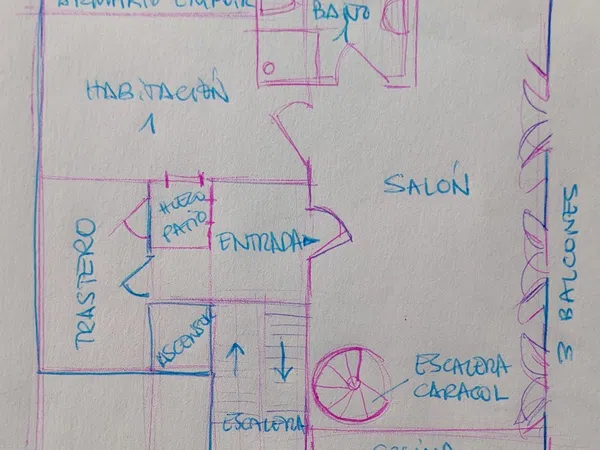 ARMARIO EMPOTR
BAÑO
1
HABITACIÓN
1
SALÓN
HUECO
PATIO
TRASTERO
ENTRADA
3 BALCONES
ASCENSOR
ESCALERA
CARACOL
ESCALERA
COCINA